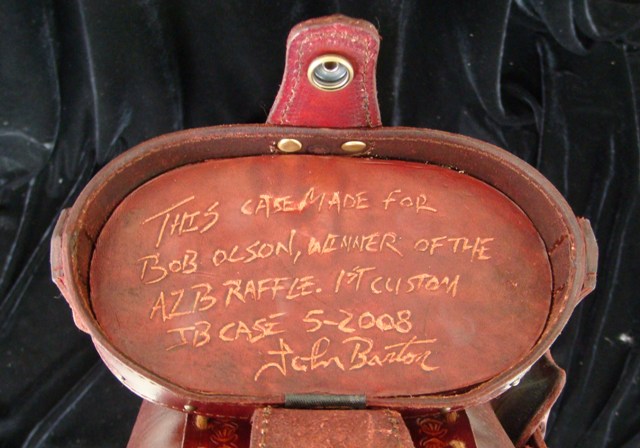 THIS CASE MADE FOR
BOB OLSON, WINNER OF THE
AZB RAFFLE. 1ST CUSTOM
JB CASE 5-2008
John Barton